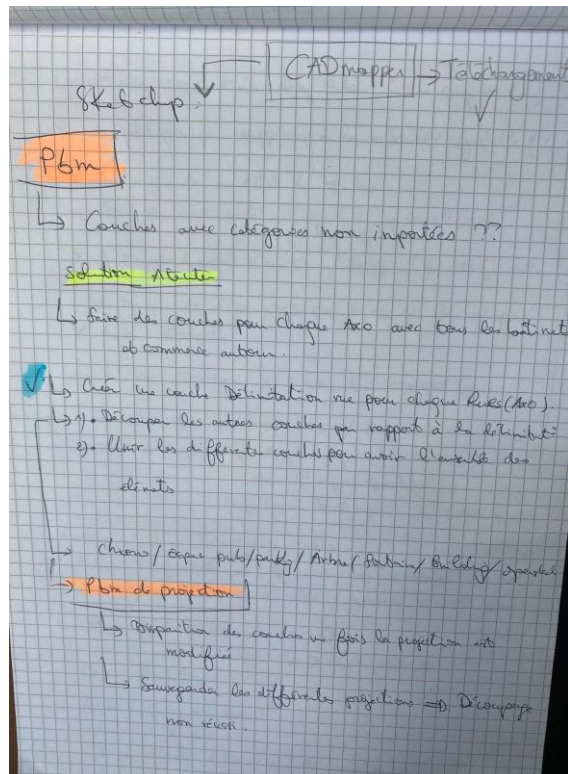 CADmapper → Téléchargement ✓
Sketchup
Pbm
↳ Couches avec catégories non importées ??
Solution
↳ faire des couches pour chaque Axo avec tous les
commerce autour.
✓ ↳ Créer une couche Délimitation rue pour chaque Rues (Axo).
↳ 1). Découper les autres couches par rapport à la
2). Unir les différentes couches pour avoir l'ensemble des
↳ / Espace pub / / Arbre / / Building /
↳ Pbm de projection
↳ Disparition des couches une fois la projection
modifié
↳ Sauvegarder les différentes projections ⇒ Découpage
non réussi.